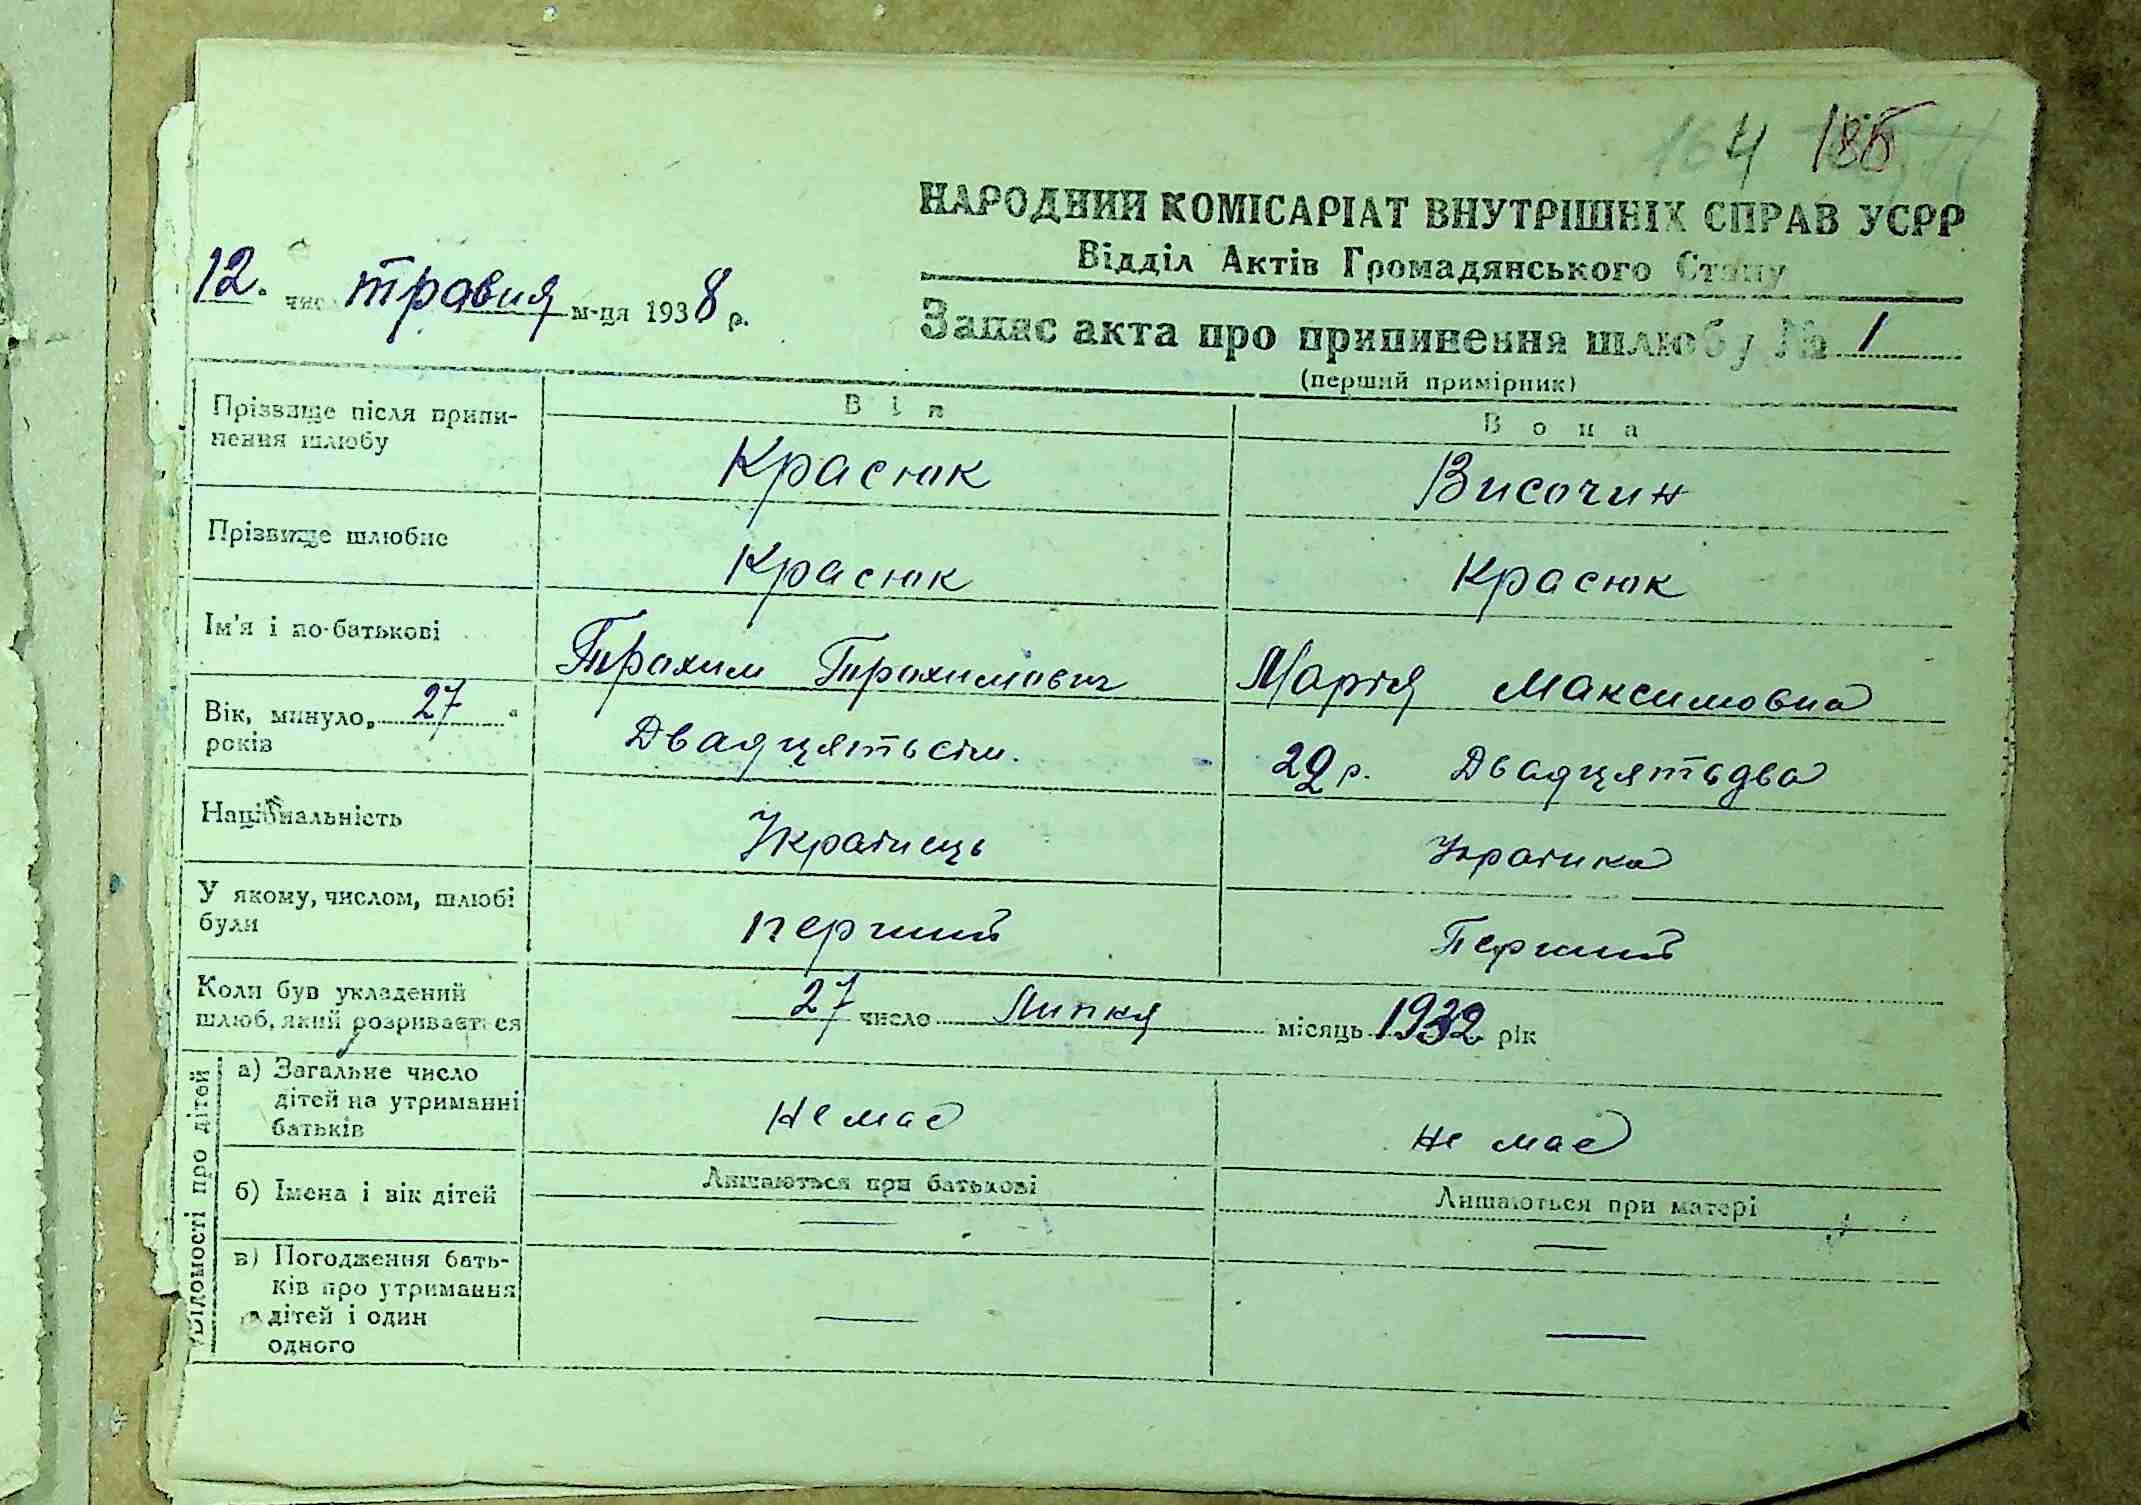 164 186
НАРОДНИЙ КОМІСАРІАТ ВНУТРІШНІХ СПРАВ УСРР
Відділ Актів Громадянського Стану
12. числ травня м-ця 1938 р.
Запис акта про припинення шлюбу № 1
(перший примірник)
Він Вона
Прізвище після припинення шлюбу Красюк Височин
Прізвище шлюбне Красюк Красюк
Ім'я і по-батькові Трохим Трохимович Марія Максимовна
Вік, минуло 27 років Двадцятьсім. 22 р. Двадцятьдва
Національність Українець Українка
У якому, числом, шлюбі були перший Перший
Коли був укладений шлюб, який розривається 27 число Липня місяць 1932 рік
Відомості про дітей
а) Загальне число дітей на утриманні батьків не має не має
б) Імена і вік дітей Лишаються при батькові — Лишаються при матері —
в) Погодження батьків про утримання дітей і один одного — —